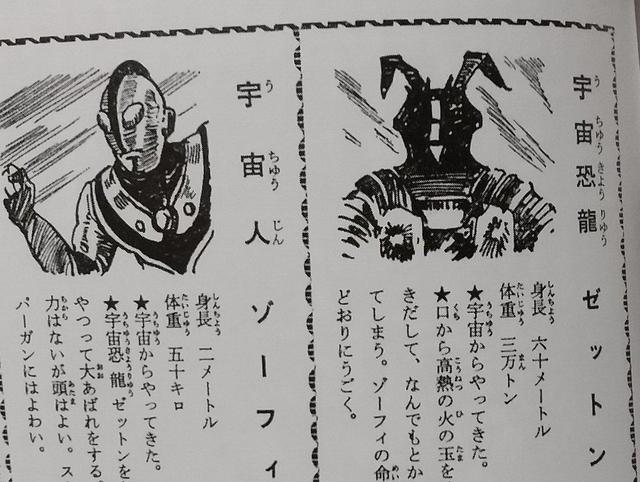 宇宙恐龍 ゼットン
うちゅうきょうりゅう
身長 六十メートル
しんちょう
体重 三万トン
たいじゅう まん
★宇宙からやってきた。
うちゅう
★口から高熱の火の玉を
くち こうねつ ひ たま
きだして、なんでもとか
てしまう。ゾーフィの命
めい
どおりにうごく。
宇宙人 ゾーフィ
うちゅうじん
身長 二メートル
しんちょう
体重 五十キロ
たいじゅう
★宇宙からやってきた。
うちゅう
★宇宙恐龍ゼットンを
うちゅうきょうりゅう
やつって大あばれをする
おお
力はないが頭はよい。ス
ちから あたま
パーガンにはよわい。